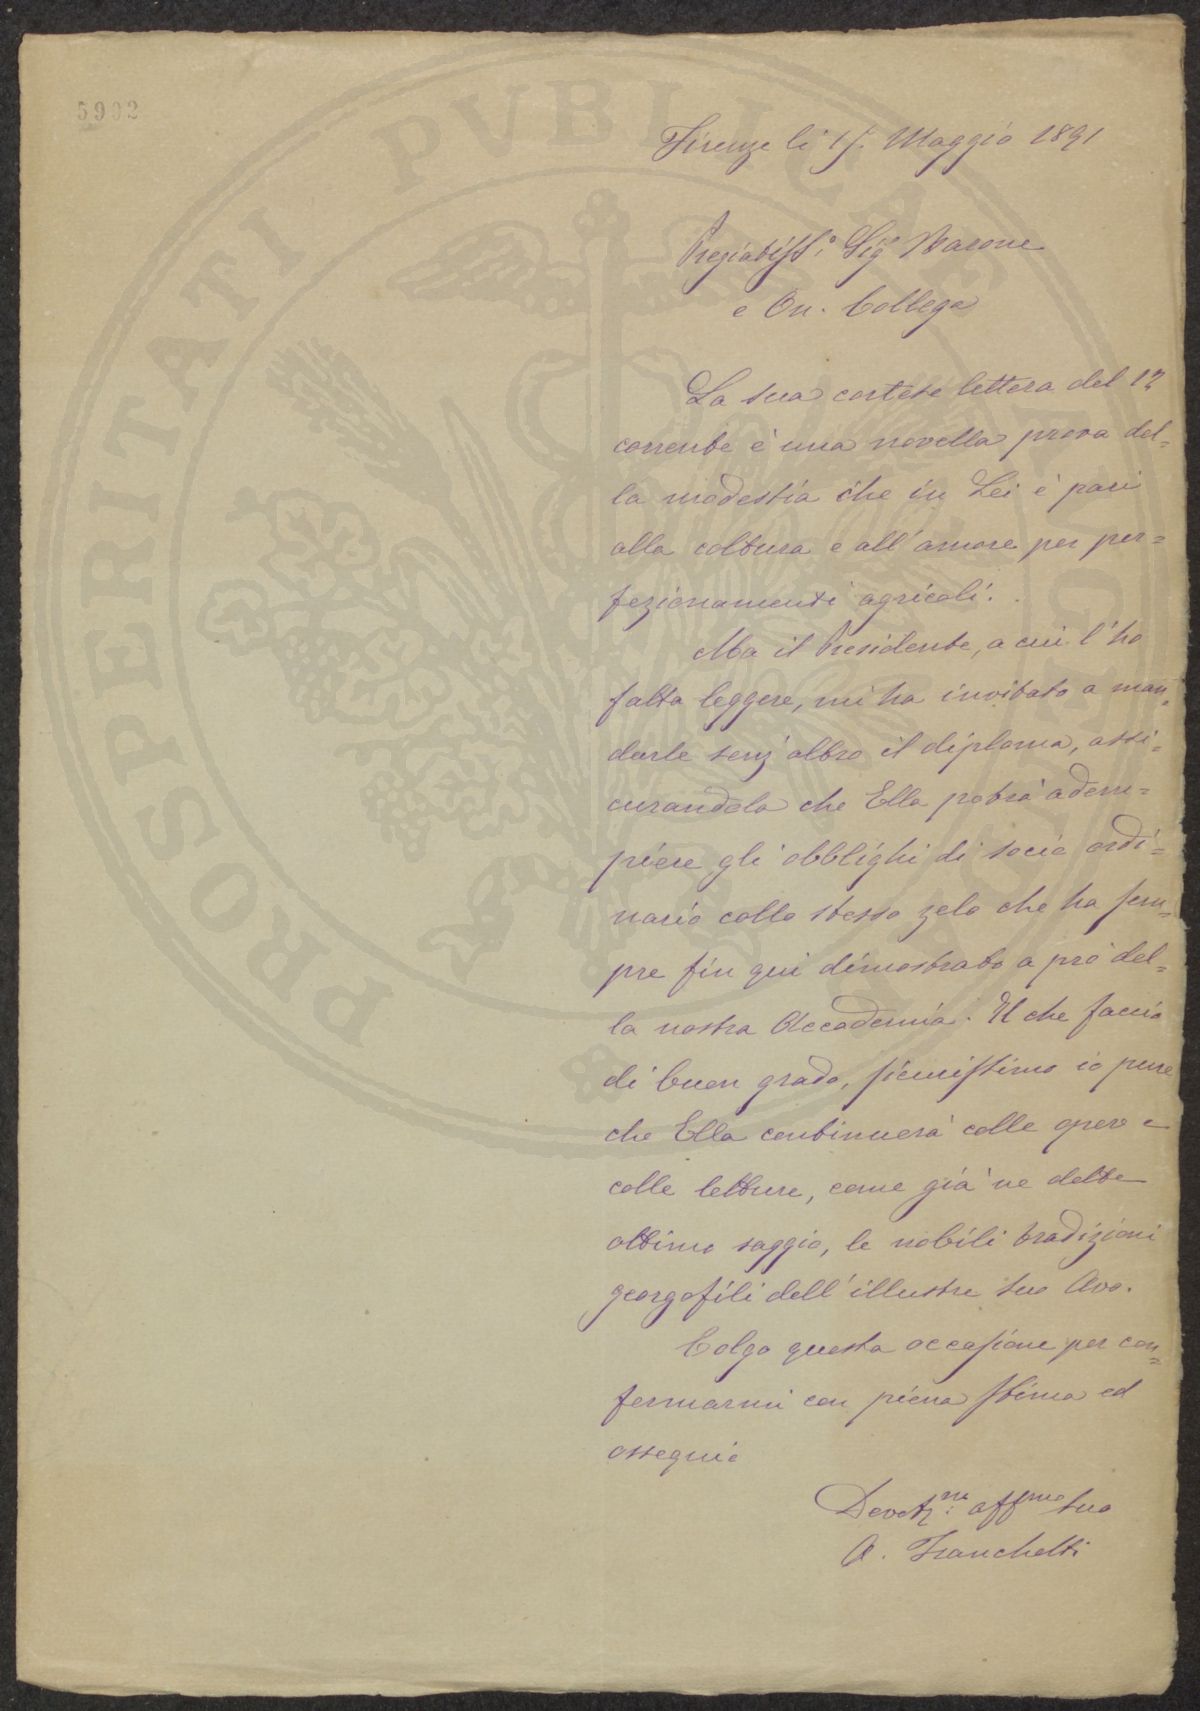 5902
PROSPERITATI PVBLICAE
Firenze li 15. Maggio 1891
Pregiatiss.º Sigr Barone
e On. Collega
La sua cortese lettera del 12
corrente è una novella prova del=
la modestia che in Lei è pari
alla coltura e all'amore per per=
fezionamenti agricoli.
Ma il Presidente, a cui l'ho
fatta leggere, mi ha invitato a man=
darle senz'altro il diploma, assi=
curandola che Ella potrà adem=
piere gli obblighi di socio ordi=
nario collo stesso zelo che ha sem=
pre fin qui dimostrato a prò del=
la nostra Accademia. Il che faccio
di buon grado, sicurissimo io pure
che Ella continuerà colle opere e
colle letture, come già ne dette
ottimo saggio, le nobili tradizioni
georgofili dell'illustre suo Avo.
Colgo questa occasione per con=
fermarmi con piena stima ed
ossequio
affmo suo
A. Franchetti